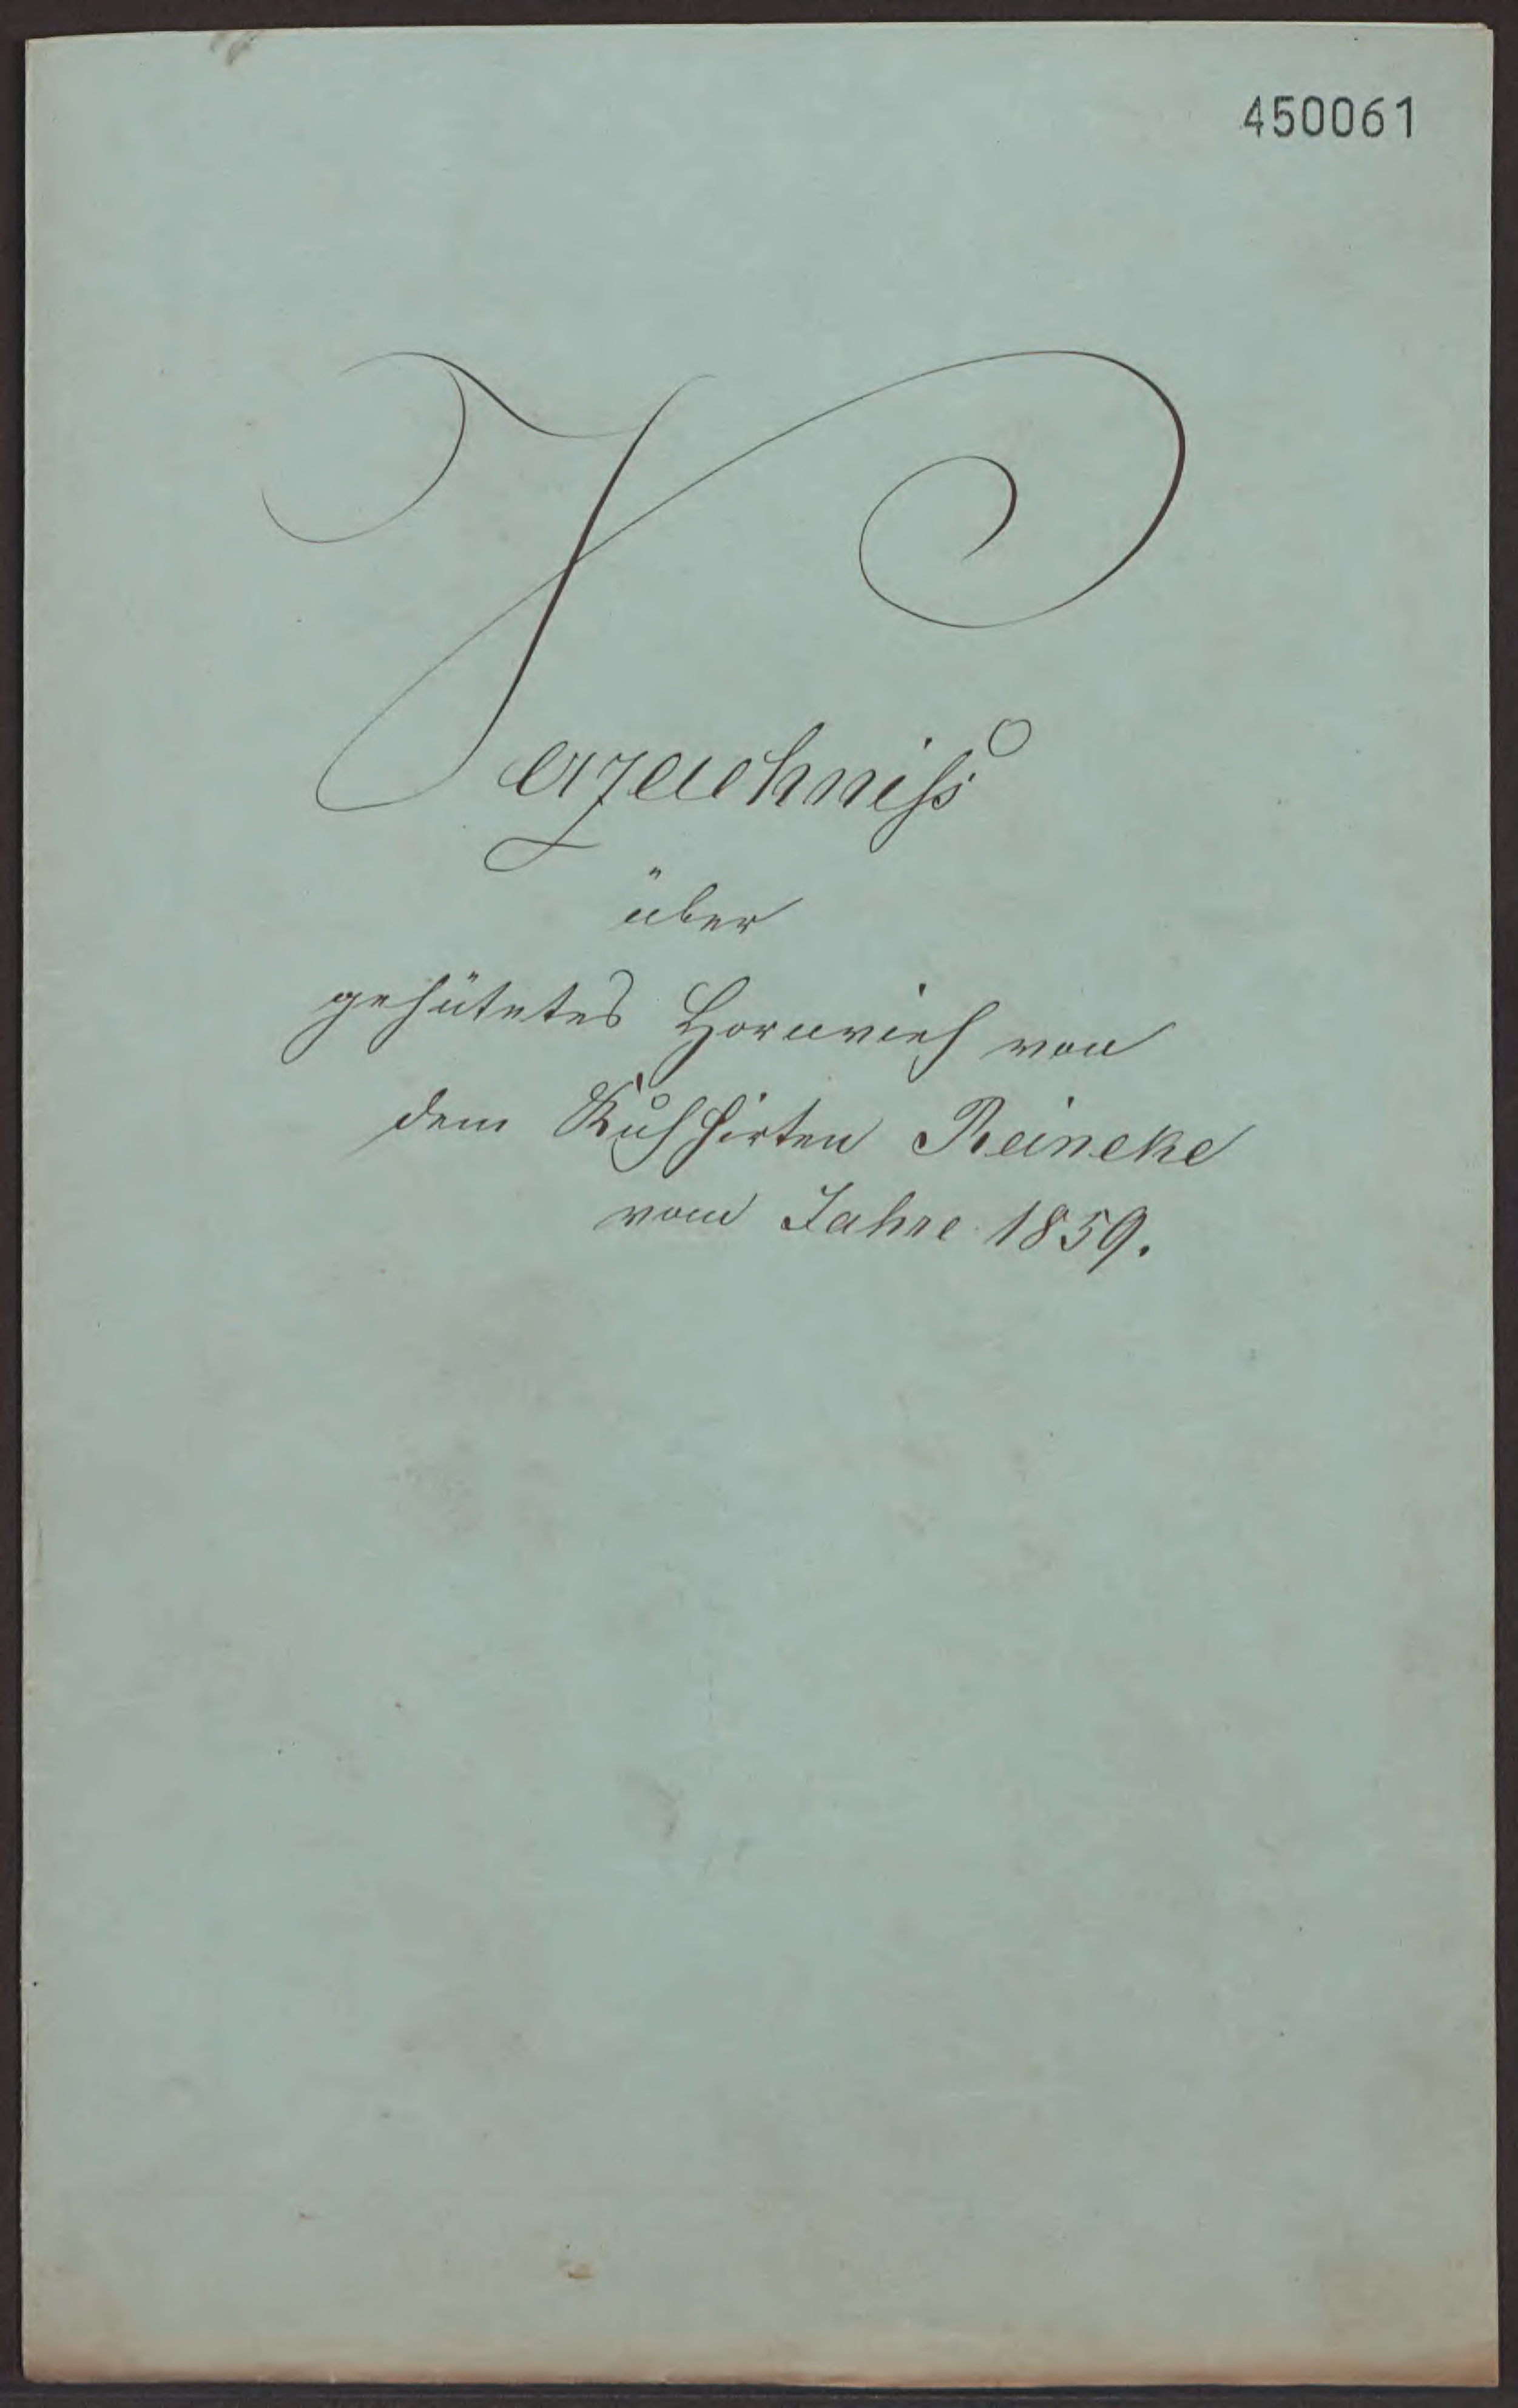 450061
Verzeichniss
über
gehütetes Hornvieh von
dem Kuhhirten Reineke
vom Jahre 1859.